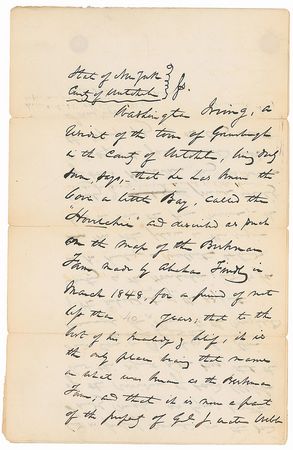 State of New York
County of Westchester } ss.
Washington Irving, a
resident of the town of Greenburgh
in the County of Westchester, being duly
sworn, says, that he has known the
Cove or little Bay, called the
and described as such
on the map of the Beekman
Farm made by Abraham in
March 1848, for a period of not
less than 40 years; that to the
best of his knowledge & belief, it is
the only place bearing that name
on what was known as the Beekman
Farm; and that it is now a part
of the property of Genl J. Watson Webb